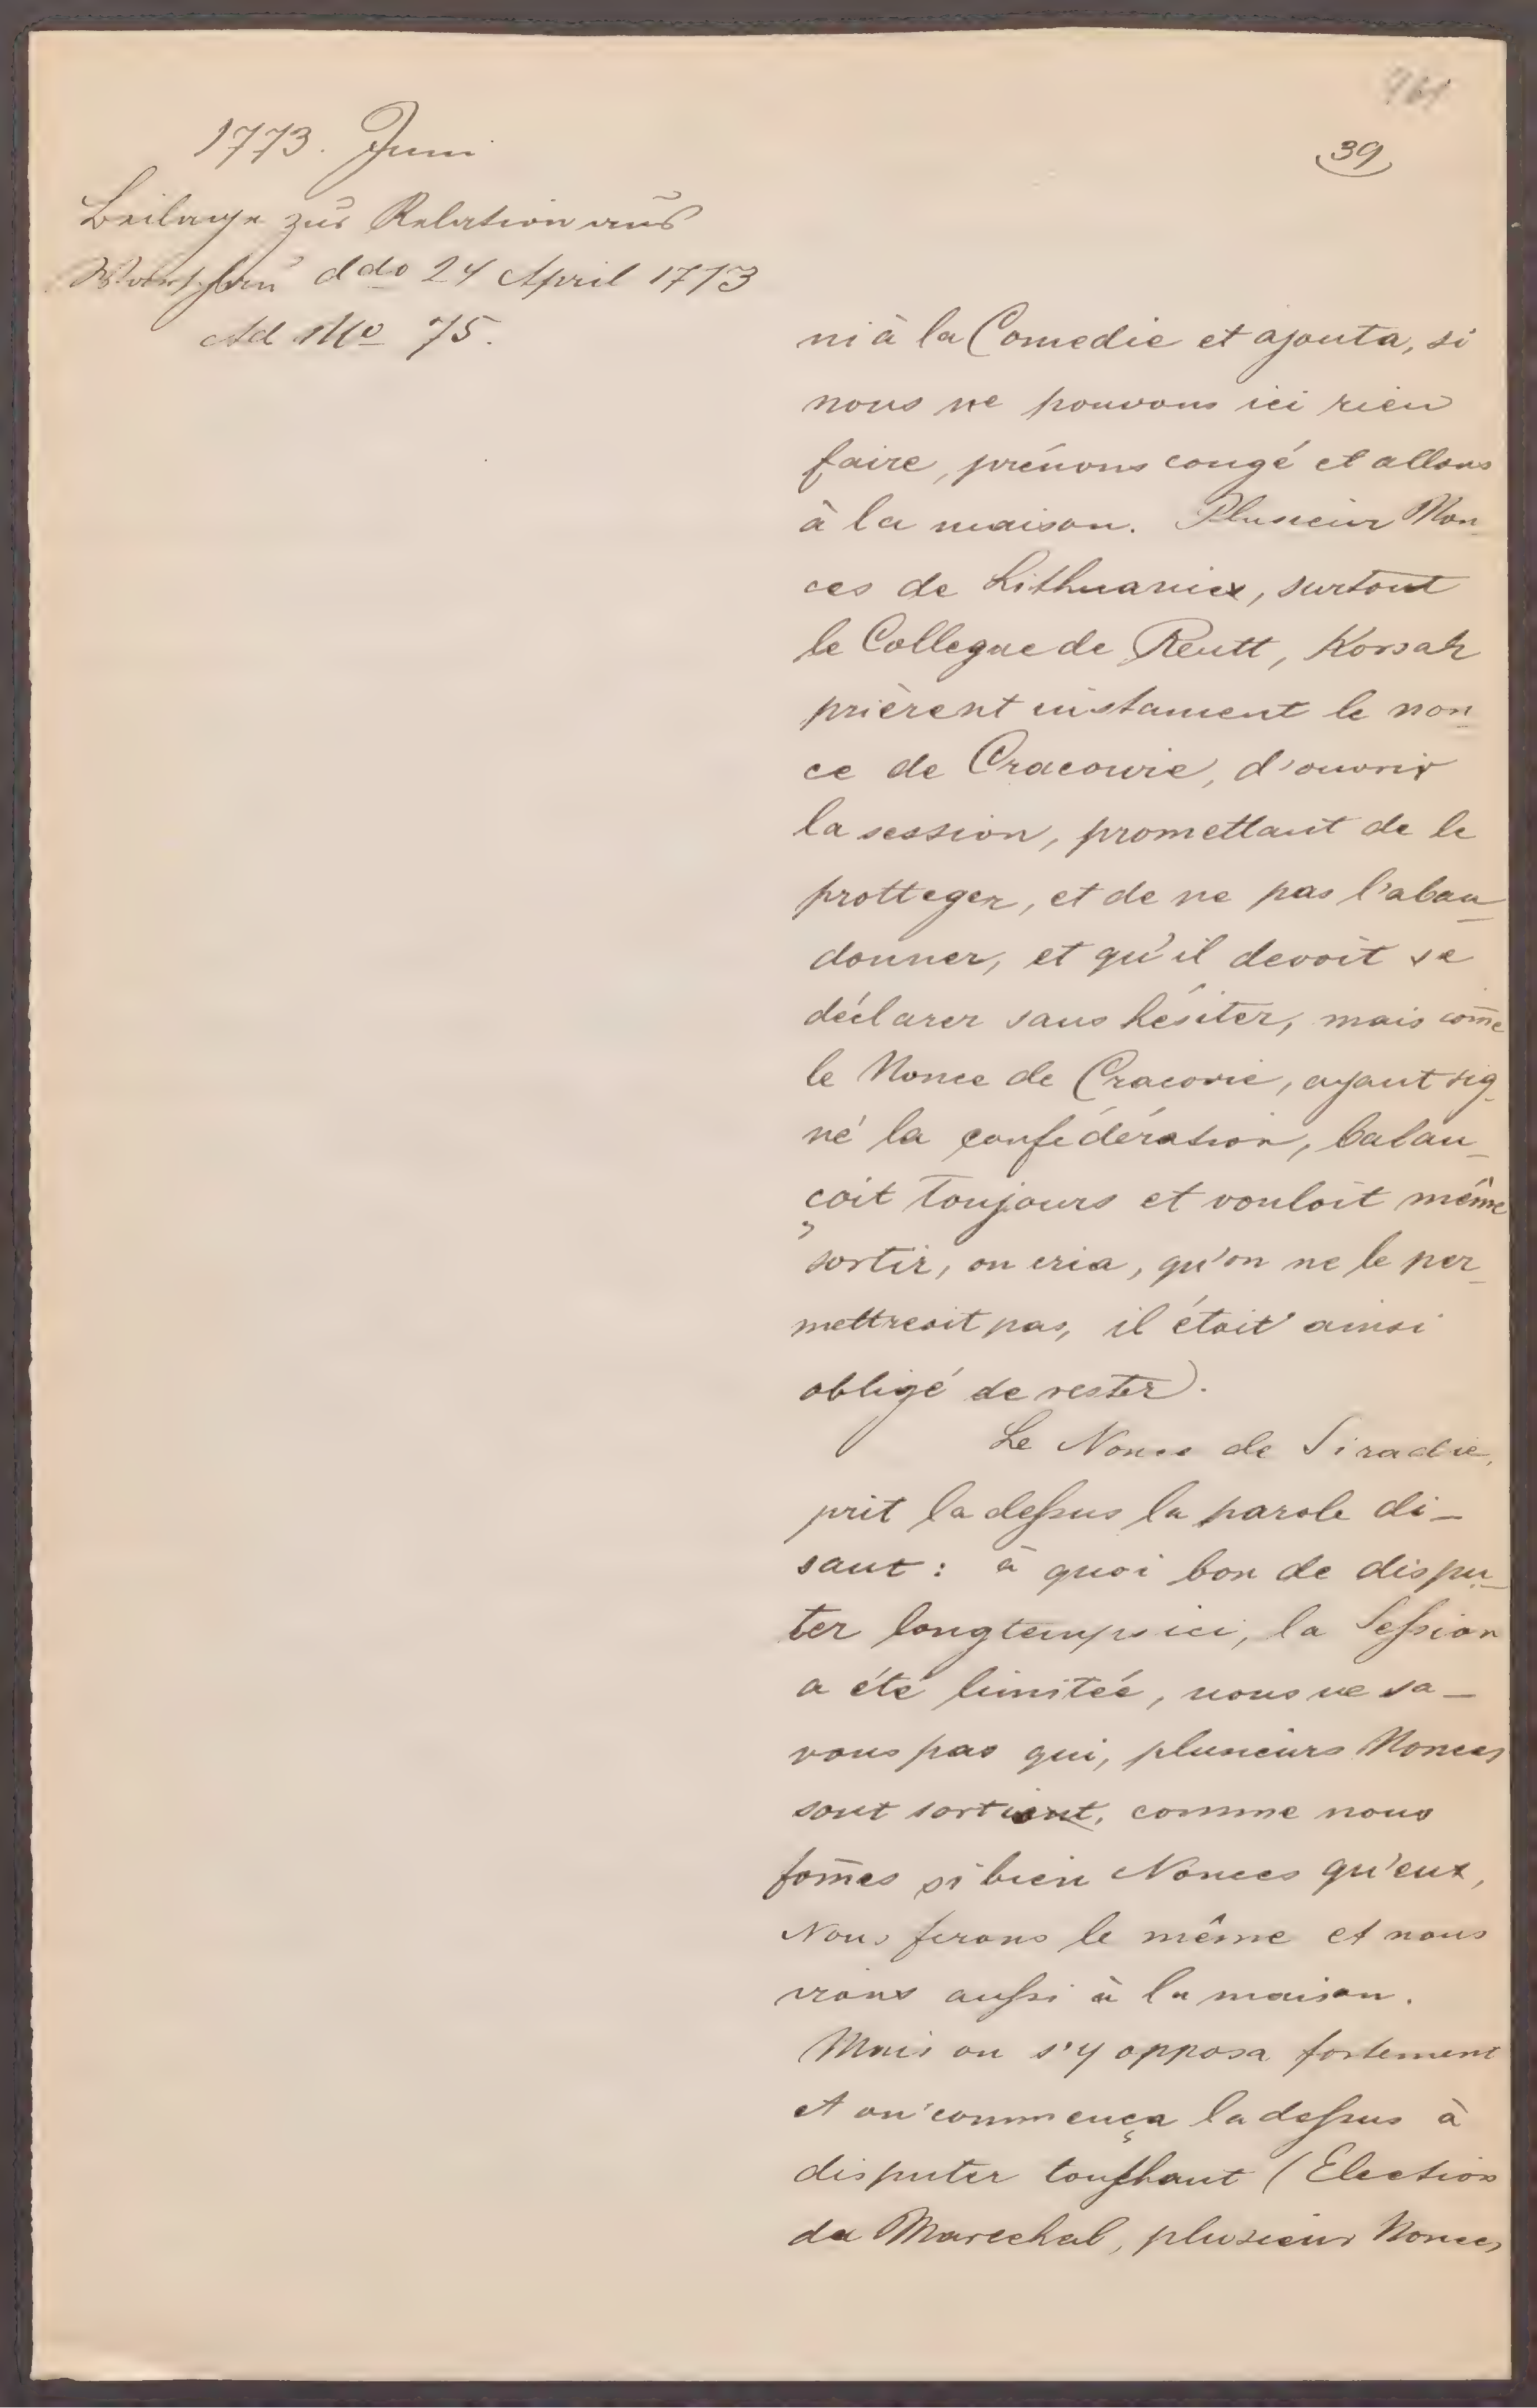 961
39
1773. Juni
Beilage zur Relation aus
Warschau ddo 24 April 1773
Ad No 75.
ni à la Comedie et ajouta, si
nous ne pouvons ici rien
faire, prénons congé et allons
à la maison. Plusieur Non-
ces de Lithuanie, surtout
le Collegue de Reutt, Korsak
prièrent instament le non-
ce de Cracovie, d'ouvrir
la session, promettant de le
protteger, et de ne pas l'aban-
donner, et qu'il devoit se
déclarer sans hésiter, mais com̄e
le Nonce de Cracovie, ayant sig-
né la confédération, balan-
çoit toujours et vouloit même
sortir, on cria, qu'on ne le per-
mettreoit pas, il étoit ainsi
obligé de rester).
Le Nonce de Siradie,
prit la dessus la parole di-
sant: à quoi bon de dispu-
ter longtemps ici, la Session
a été limitée, nous ne sa-
vons pas qui, plusieurs Nonces
sont sortient, comme nous
som̄es si bien Nonces qu'eux,
Nous ferons le même et nous
irons aussi à la maison.
Mais on s'y opposa fortement
et on commença la dessus à
disputer touchant l'Election
du Marechal, plusieur Nonces